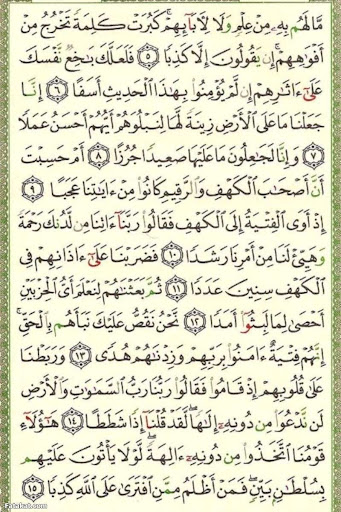 مَّا لَهُم بِهِۦ مِنْ عِلْمٍ وَلَا لِآبَآئِهِمْ ۚ كَبُرَتْ كَلِمَةً تَخْرُجُ مِنْ
أَفْوَٰهِهِمْ ۚ إِن يَقُولُونَ إِلَّا كَذِبًا ٥ فَلَعَلَّكَ بَٰخِعٌ نَّفْسَكَ
عَلَىٰٓ ءَاثَٰرِهِمْ إِن لَّمْ يُؤْمِنُوا۟ بِهَٰذَا ٱلْحَدِيثِ أَسَفًا ٦ إِنَّا
جَعَلْنَا مَا عَلَى ٱلْأَرْضِ زِينَةً لَّهَا لِنَبْلُوَهُمْ أَيُّهُمْ أَحْسَنُ عَمَلًا
٧ وَإِنَّا لَجَٰعِلُونَ مَا عَلَيْهَا صَعِيدًا جُرُزًا ٨ أَمْ حَسِبْتَ
أَنَّ أَصْحَٰبَ ٱلْكَهْفِ وَٱلرَّقِيمِ كَانُوا۟ مِنْ ءَايَٰتِنَا عَجَبًا ٩
إِذْ أَوَى ٱلْفِتْيَةُ إِلَى ٱلْكَهْفِ فَقَالُوا۟ رَبَّنَآ ءَاتِنَا مِن لَّدُنكَ رَحْمَةً
وَهَيِّئْ لَنَا مِنْ أَمْرِنَا رَشَدًا ١٠ فَضَرَبْنَا عَلَىٰٓ ءَاذَانِهِمْ فِى
ٱلْكَهْفِ سِنِينَ عَدَدًا ١١ ثُمَّ بَعَثْنَٰهُمْ لِنَعْلَمَ أَىُّ ٱلْحِزْبَيْنِ
أَحْصَىٰ لِمَا لَبِثُوٓا۟ أَمَدًا ١٢ نَّحْنُ نَقُصُّ عَلَيْكَ نَبَأَهُم بِٱلْحَقِّ ۚ
إِنَّهُمْ فِتْيَةٌ ءَامَنُوا۟ بِرَبِّهِمْ وَزِدْنَٰهُمْ هُدًى ١٣ وَرَبَطْنَا
عَلَىٰ قُلُوبِهِمْ إِذْ قَامُوا۟ فَقَالُوا۟ رَبُّنَا رَبُّ ٱلسَّمَٰوَٰتِ وَٱلْأَرْضِ
لَن نَّدْعُوَا۟ مِن دُونِهِۦٓ إِلَٰهًا ۖ لَّقَدْ قُلْنَآ إِذًا شَطَطًا ١٤ هَٰٓؤُلَآءِ
قَوْمُنَا ٱتَّخَذُوا۟ مِن دُونِهِۦٓ ءَالِهَةً ۖ لَّوْلَا يَأْتُونَ عَلَيْهِم
بِسُلْطَٰنٍۭ بَيِّنٍ ۖ فَمَنْ أَظْلَمُ مِمَّنِ ٱفْتَرَىٰ عَلَى ٱللَّهِ كَذِبًا ١٥
Patakat.com